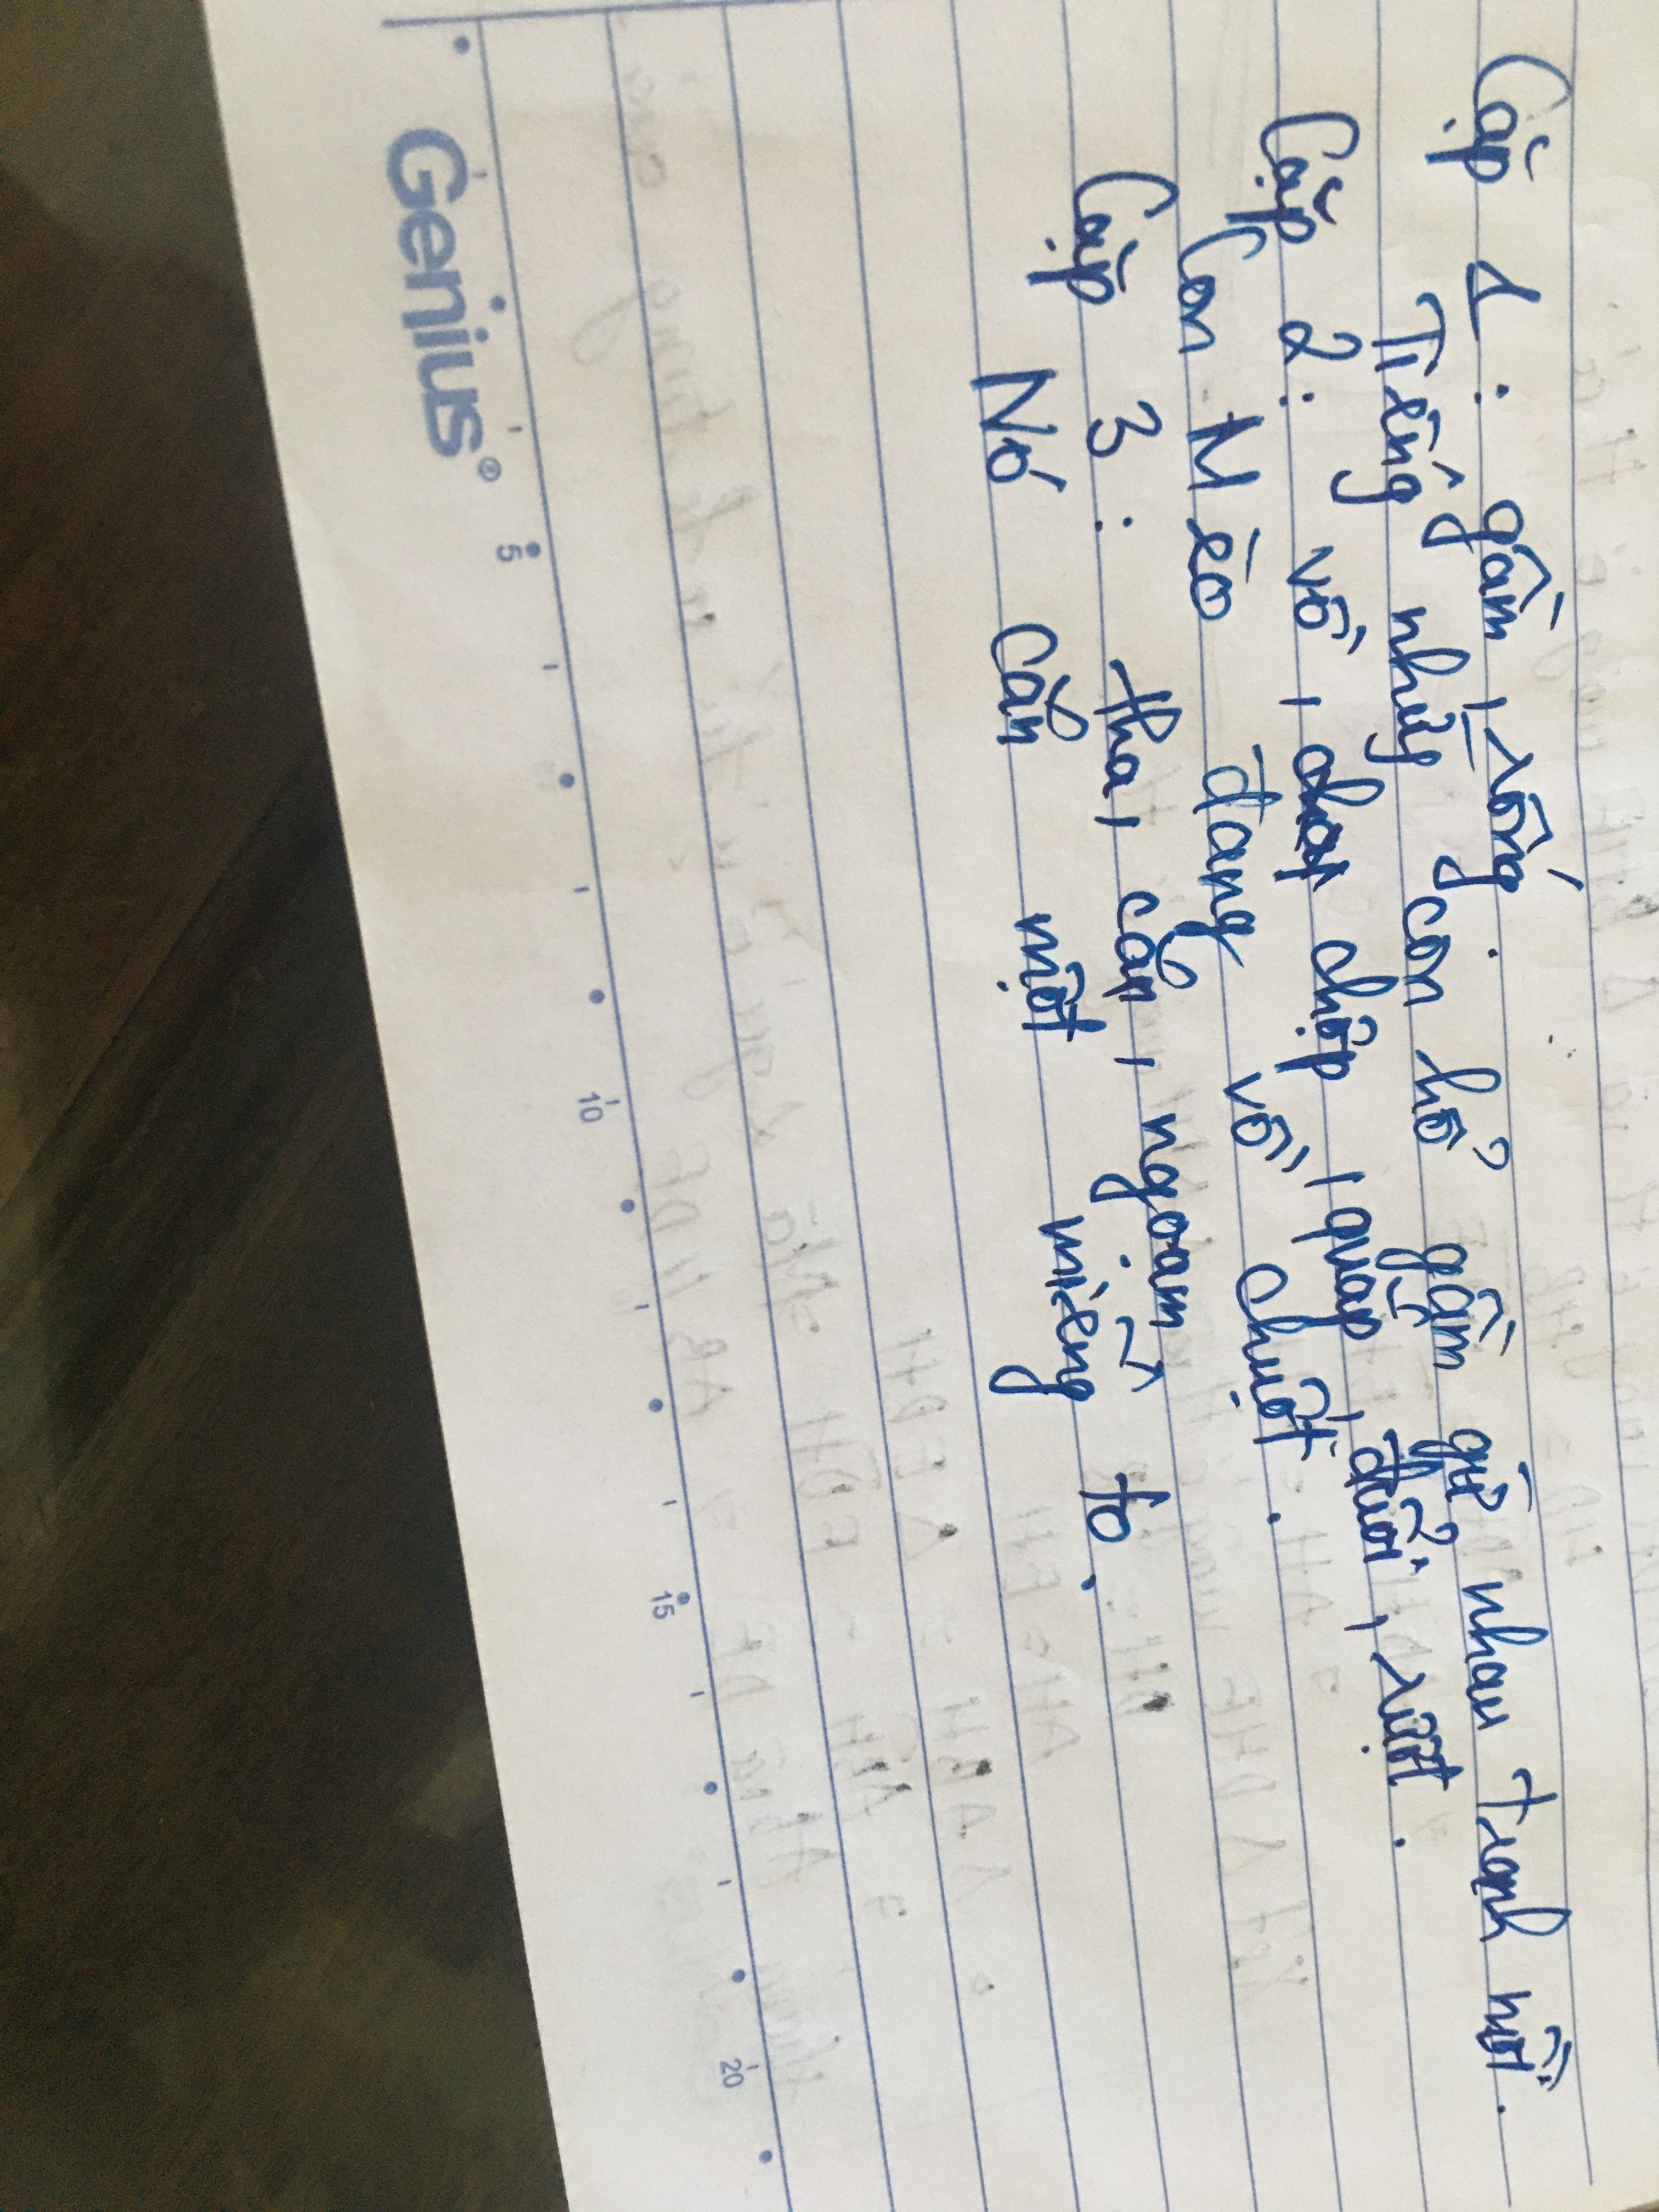 Cặp 1 : gầm, rống.
Tiếng những con hổ gầm gừ nhau tranh mồi.
Cặp 2: vồ, chộp, quặp, đuổi, rượt.
Con Mèo đang vồ chuột.
Cặp 3 : tha, cắn, ngoạm
Nó cắn một miếng to.
Genius®
5 10 15 20